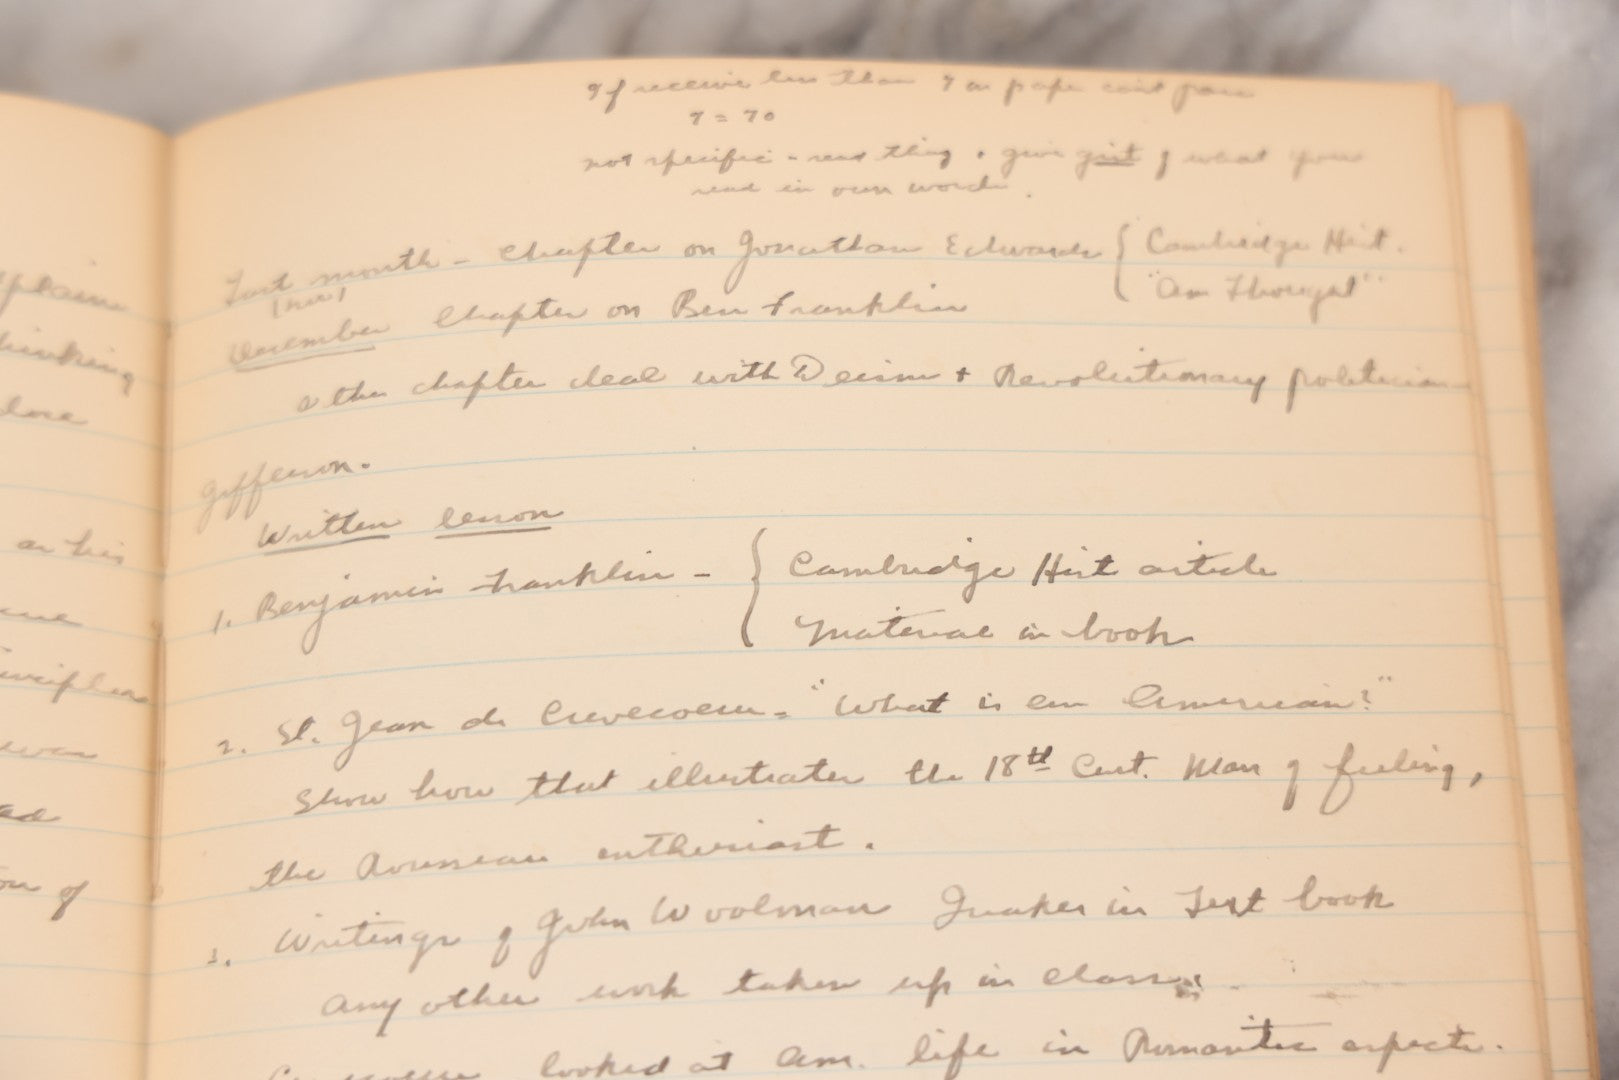 plain
thinking
or his
was
of
If receive less than 7 on paper can't pass
7 = 70
not specific - read thing + give gist of what you
read in own words.
Last month - Chapter on Jonathan Edwards { Cambridge Hist.
"Am Thought"
December Chapter on Ben Franklin
other chapter deal with Deism + Revolutionary politician
Jefferson.
Written lesson
1. Benjamin Franklin - { Cambridge Hist article
Material in book
2. St. Jean de Crevecoeur - "What is an American?"
Show how that illustrates the 18th Cent. Man of feeling,
the Rousseau enthusiast.
3. Writings of John Woolman Quaker in Text book
Any other work taken up in class.
Crevecoeur looked at Am. life in Romantic aspects.